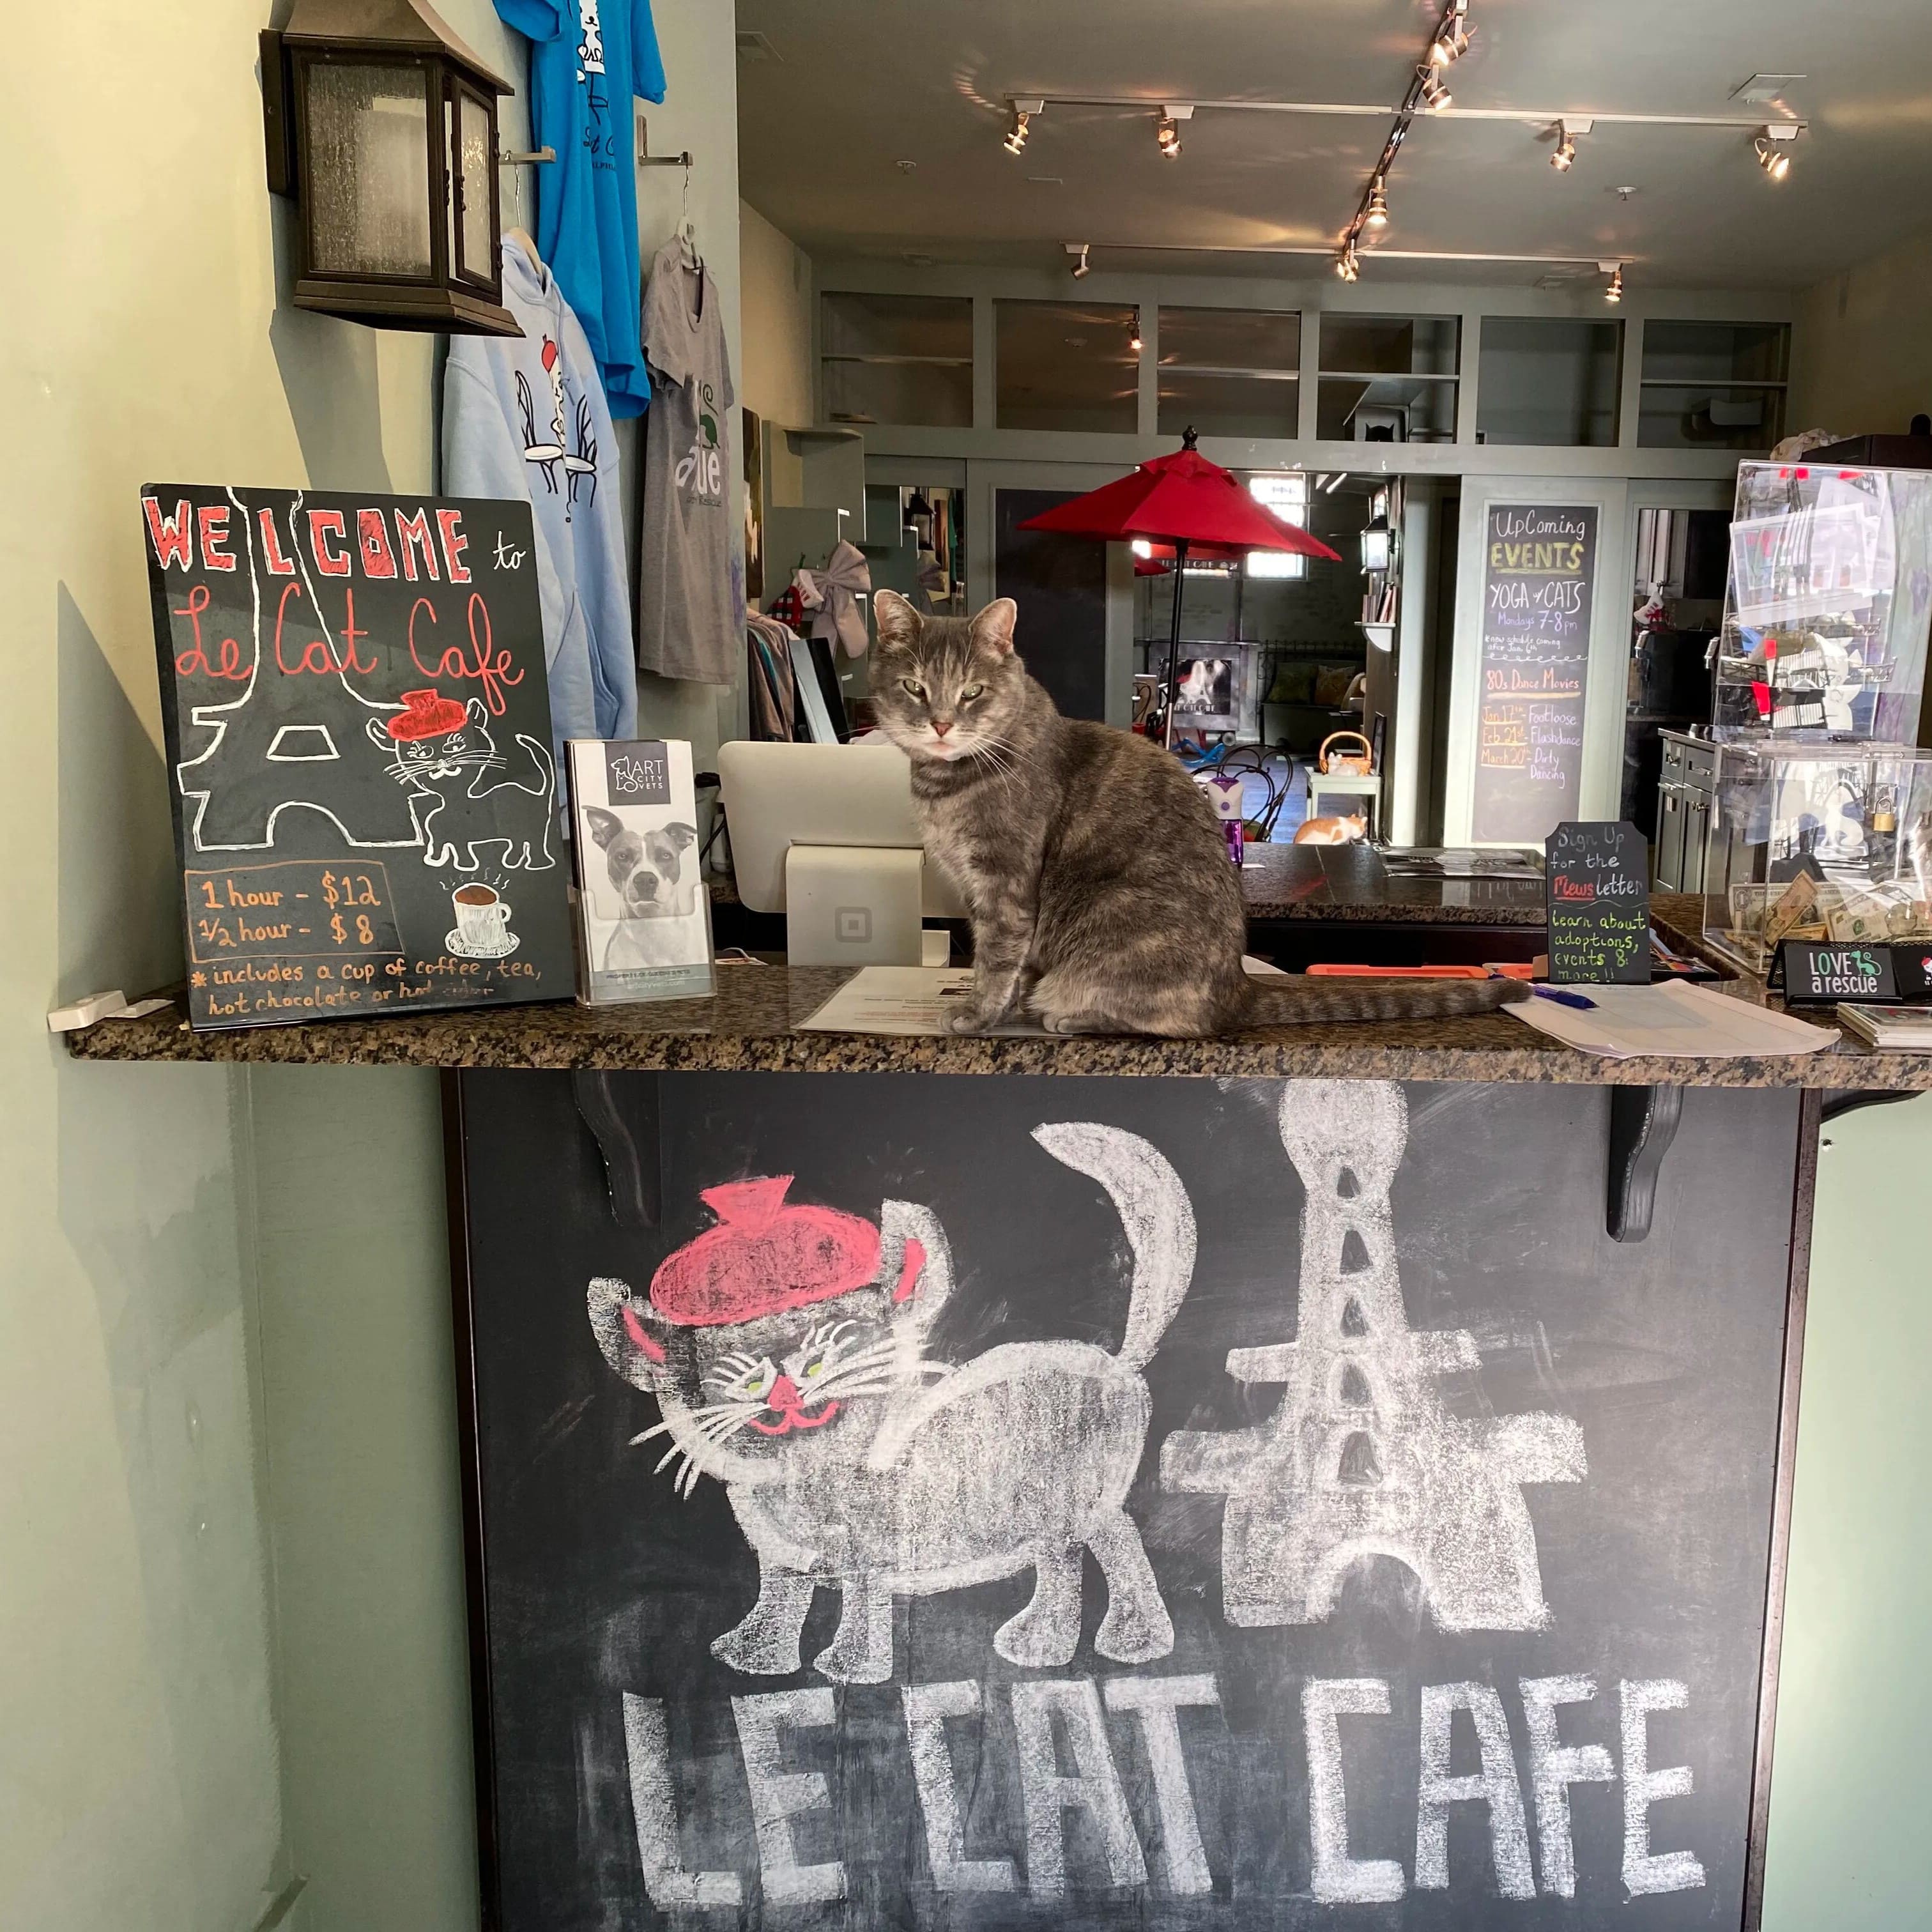 WELCOME to
Le Cat Cafe
1 hour - $12
1/2 hour - $8
* includes a cup of coffee, tea,
hot chocolate or hot cider
ART
CITY
VETS
UpComing
EVENTS
YOGA w/ CATS
Mondays 7-8pm
80s Dance Movies
Jan 17th - Footloose
Feb 21st - Flashdance
March 20th - Dirty
Dancing
Sign Up
for the
Mewsletter
Learn about
adoptions,
events &
more!!
LOVE
a rescue
LE CAT CAFE